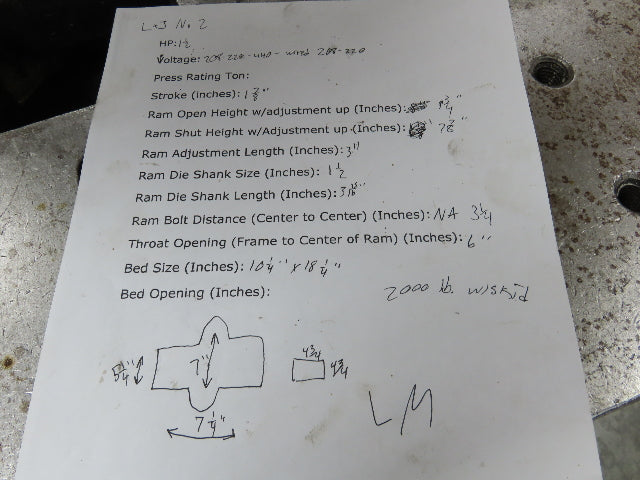 L+J No 2
HP: 1 1/2
Voltage: 208-220-440 - wired 208-220
Press Rating Ton:
Stroke (inches): 1 7/8"
Ram Open Height w/adjustment up (Inches): 9 3/4"
Ram Shut Height w/Adjustment up (Inches): 7 7/8"
Ram Adjustment Length (Inches): 3"
Ram Die Shank Size (Inches): 1 1/2
Ram Die Shank Length (Inches): 3
Ram Bolt Distance (Center to Center) (Inches): NA 3 1/4
Throat Opening (Frame to Center of Ram) (Inches): 6"
Bed Size (Inches): 10 1/4" x 18 1/4"
Bed Opening (Inches):
2000 lb. w/skid
7"
4 3/4
4 3/4
7 1/4"
LM